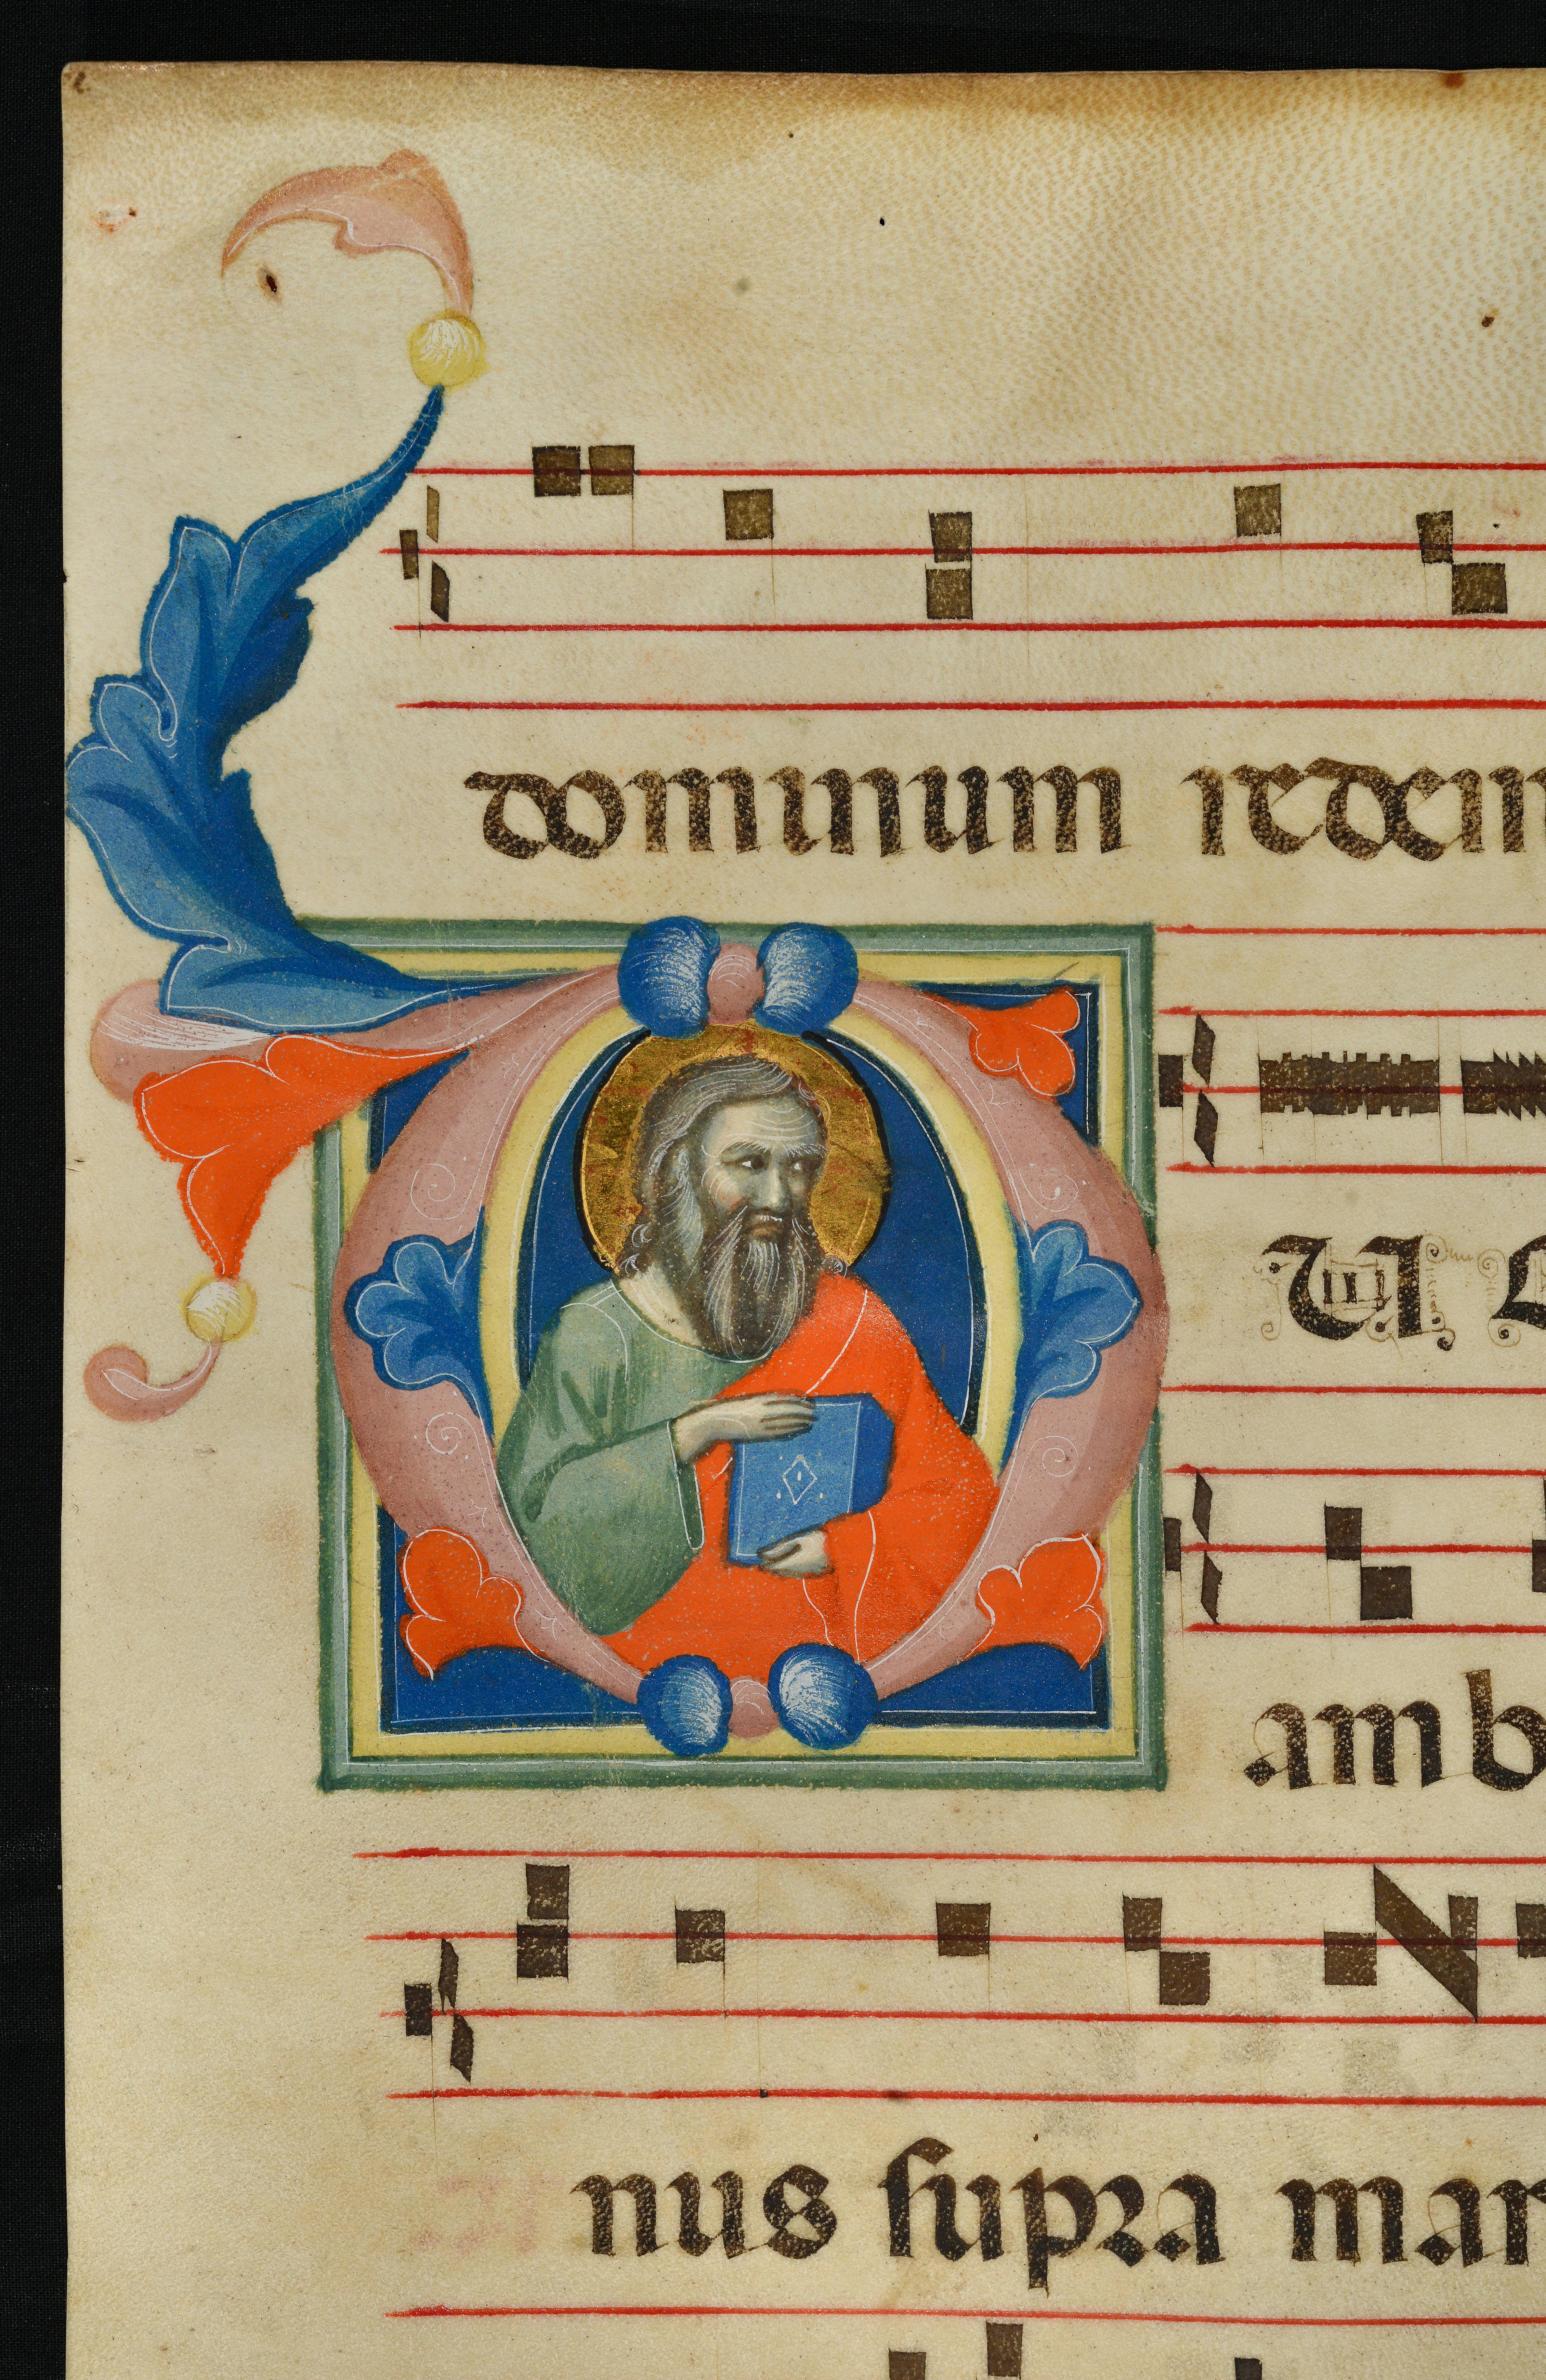 dominum redem
U
amb
nus supra mar